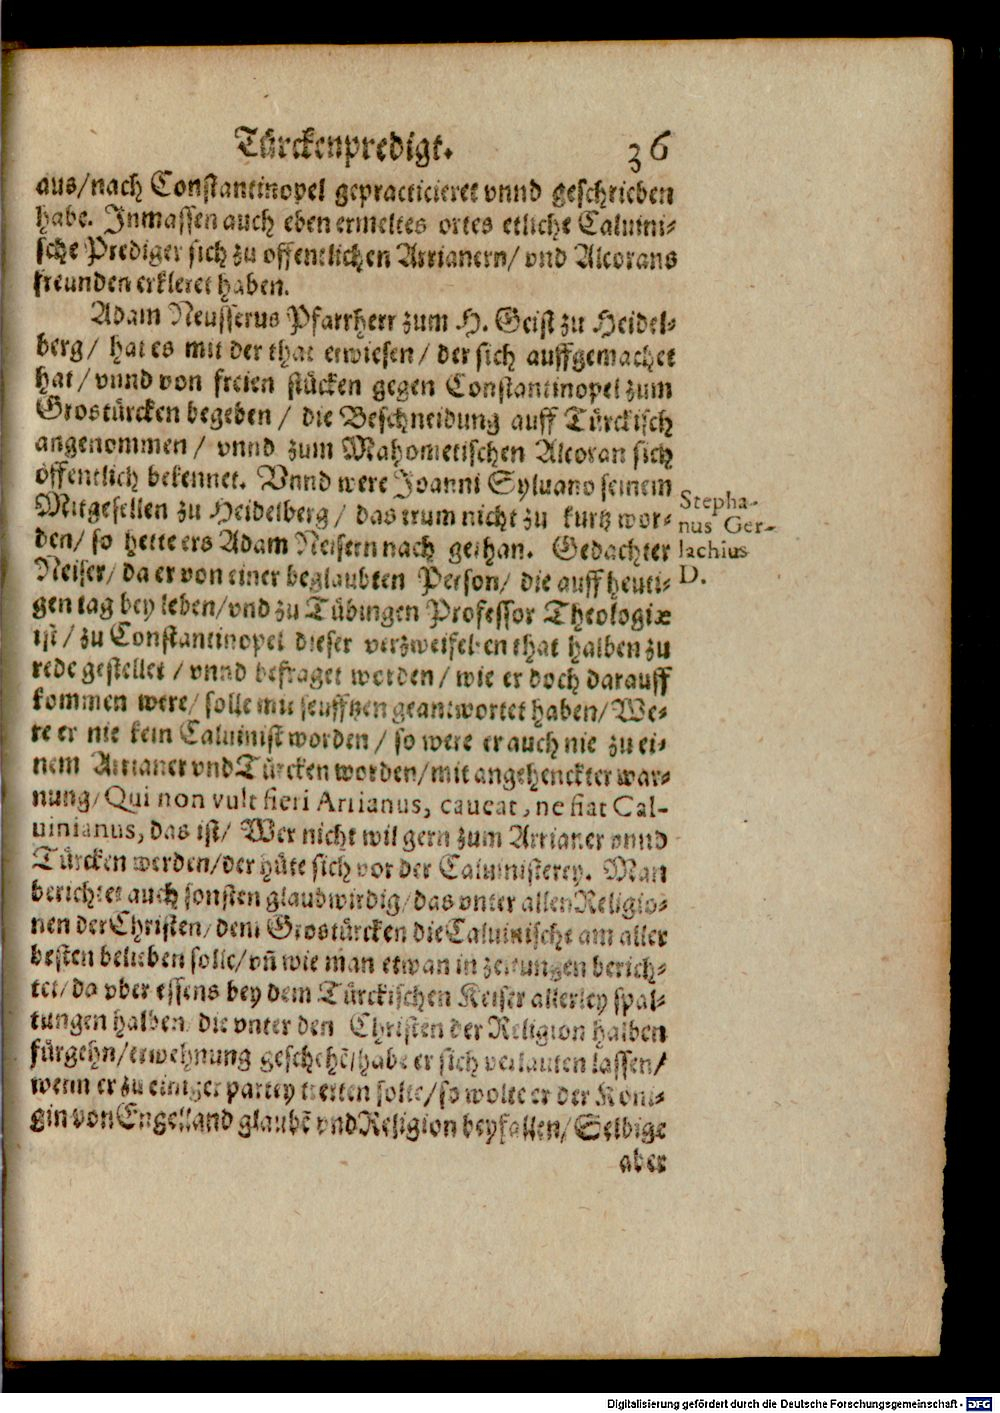 Türckenpredigt. 36
aus/nach Constantinopel gepracticieret vnnd geschrieben
habe. Inmassen auch eben ermeltes ortes etliche Caluini-
sche Prediger sich zu offentlichen Arrianern/ vnd Alcorans
freunden erkleret haben.
Adam Neusserus Pfarrherr zum H. Geist zu Heidel-
berg/ hat es mit der that erwiesen/ der sich auffgemachet
hat/ vnnd von freien stücken gegen Constantinopel zum
Grostürcken begeben/ die Beschneidung auff Türckisch
angenommen/ vnnd zum Mahometischen Alcoran sich
öffentlich bekennet. Vnnd were Joanni Syluano seinem
Mitgesellen zu Heidelberg/ das trum nicht zu kurtz wor-
den/ so hette ers Adam Neisern nach gethan. Gedachter
Neiser/ da er von einer beglaubten Person/ die auff heuti-
gen tag bey leben/vnd zu Tübingen Professor Theologiæ
ist/ zu Constantinopel dieser verzweifelten that halben zu
rede gestellet/ vnnd befraget worden/ wie er doch darauff
kommen were/ solle mit seufftzen geantwortet haben/ We-
re er nie kein Caluinist worden/ so were er auch nie zu ei-
nem Arrianer vnd Türcken worden/ mit angehenckter war-
nung/ Qui non vult fieri Arrianus, caueat, ne fiat Cal-
uinianus, das ist/ Wer nicht wil gern zum Arrianer vnnd
Türcken werden/der hüte sich vor der Caluinisterey. Man
berichtet auch sonsten glaubwirdig/ das vnter allen Religio-
nen der Christen/ dem Grostürcken die Caluinische am aller
besten belieben solle/ vñ wie man etwan in zeitungen berich-
tet/ da vber essens bey dem Türckischen Keiser allerley spal-
tungen halben/ die vnter den Christen der Religion halben
fürgehn/ erwehnung geschehẽ/ habe er sich verlauten lassen/
wenn er zu einiger partey tretten solte/ so wolte er der Köni-
gin von Engelland glaubẽ vnd Religion beyfallen/ Selbige
aber
Stepha-
nus Ger-
lachius
D.
Digitalisierung gefördert durch die Deutsche Forschungsgemeinschaft - DFG